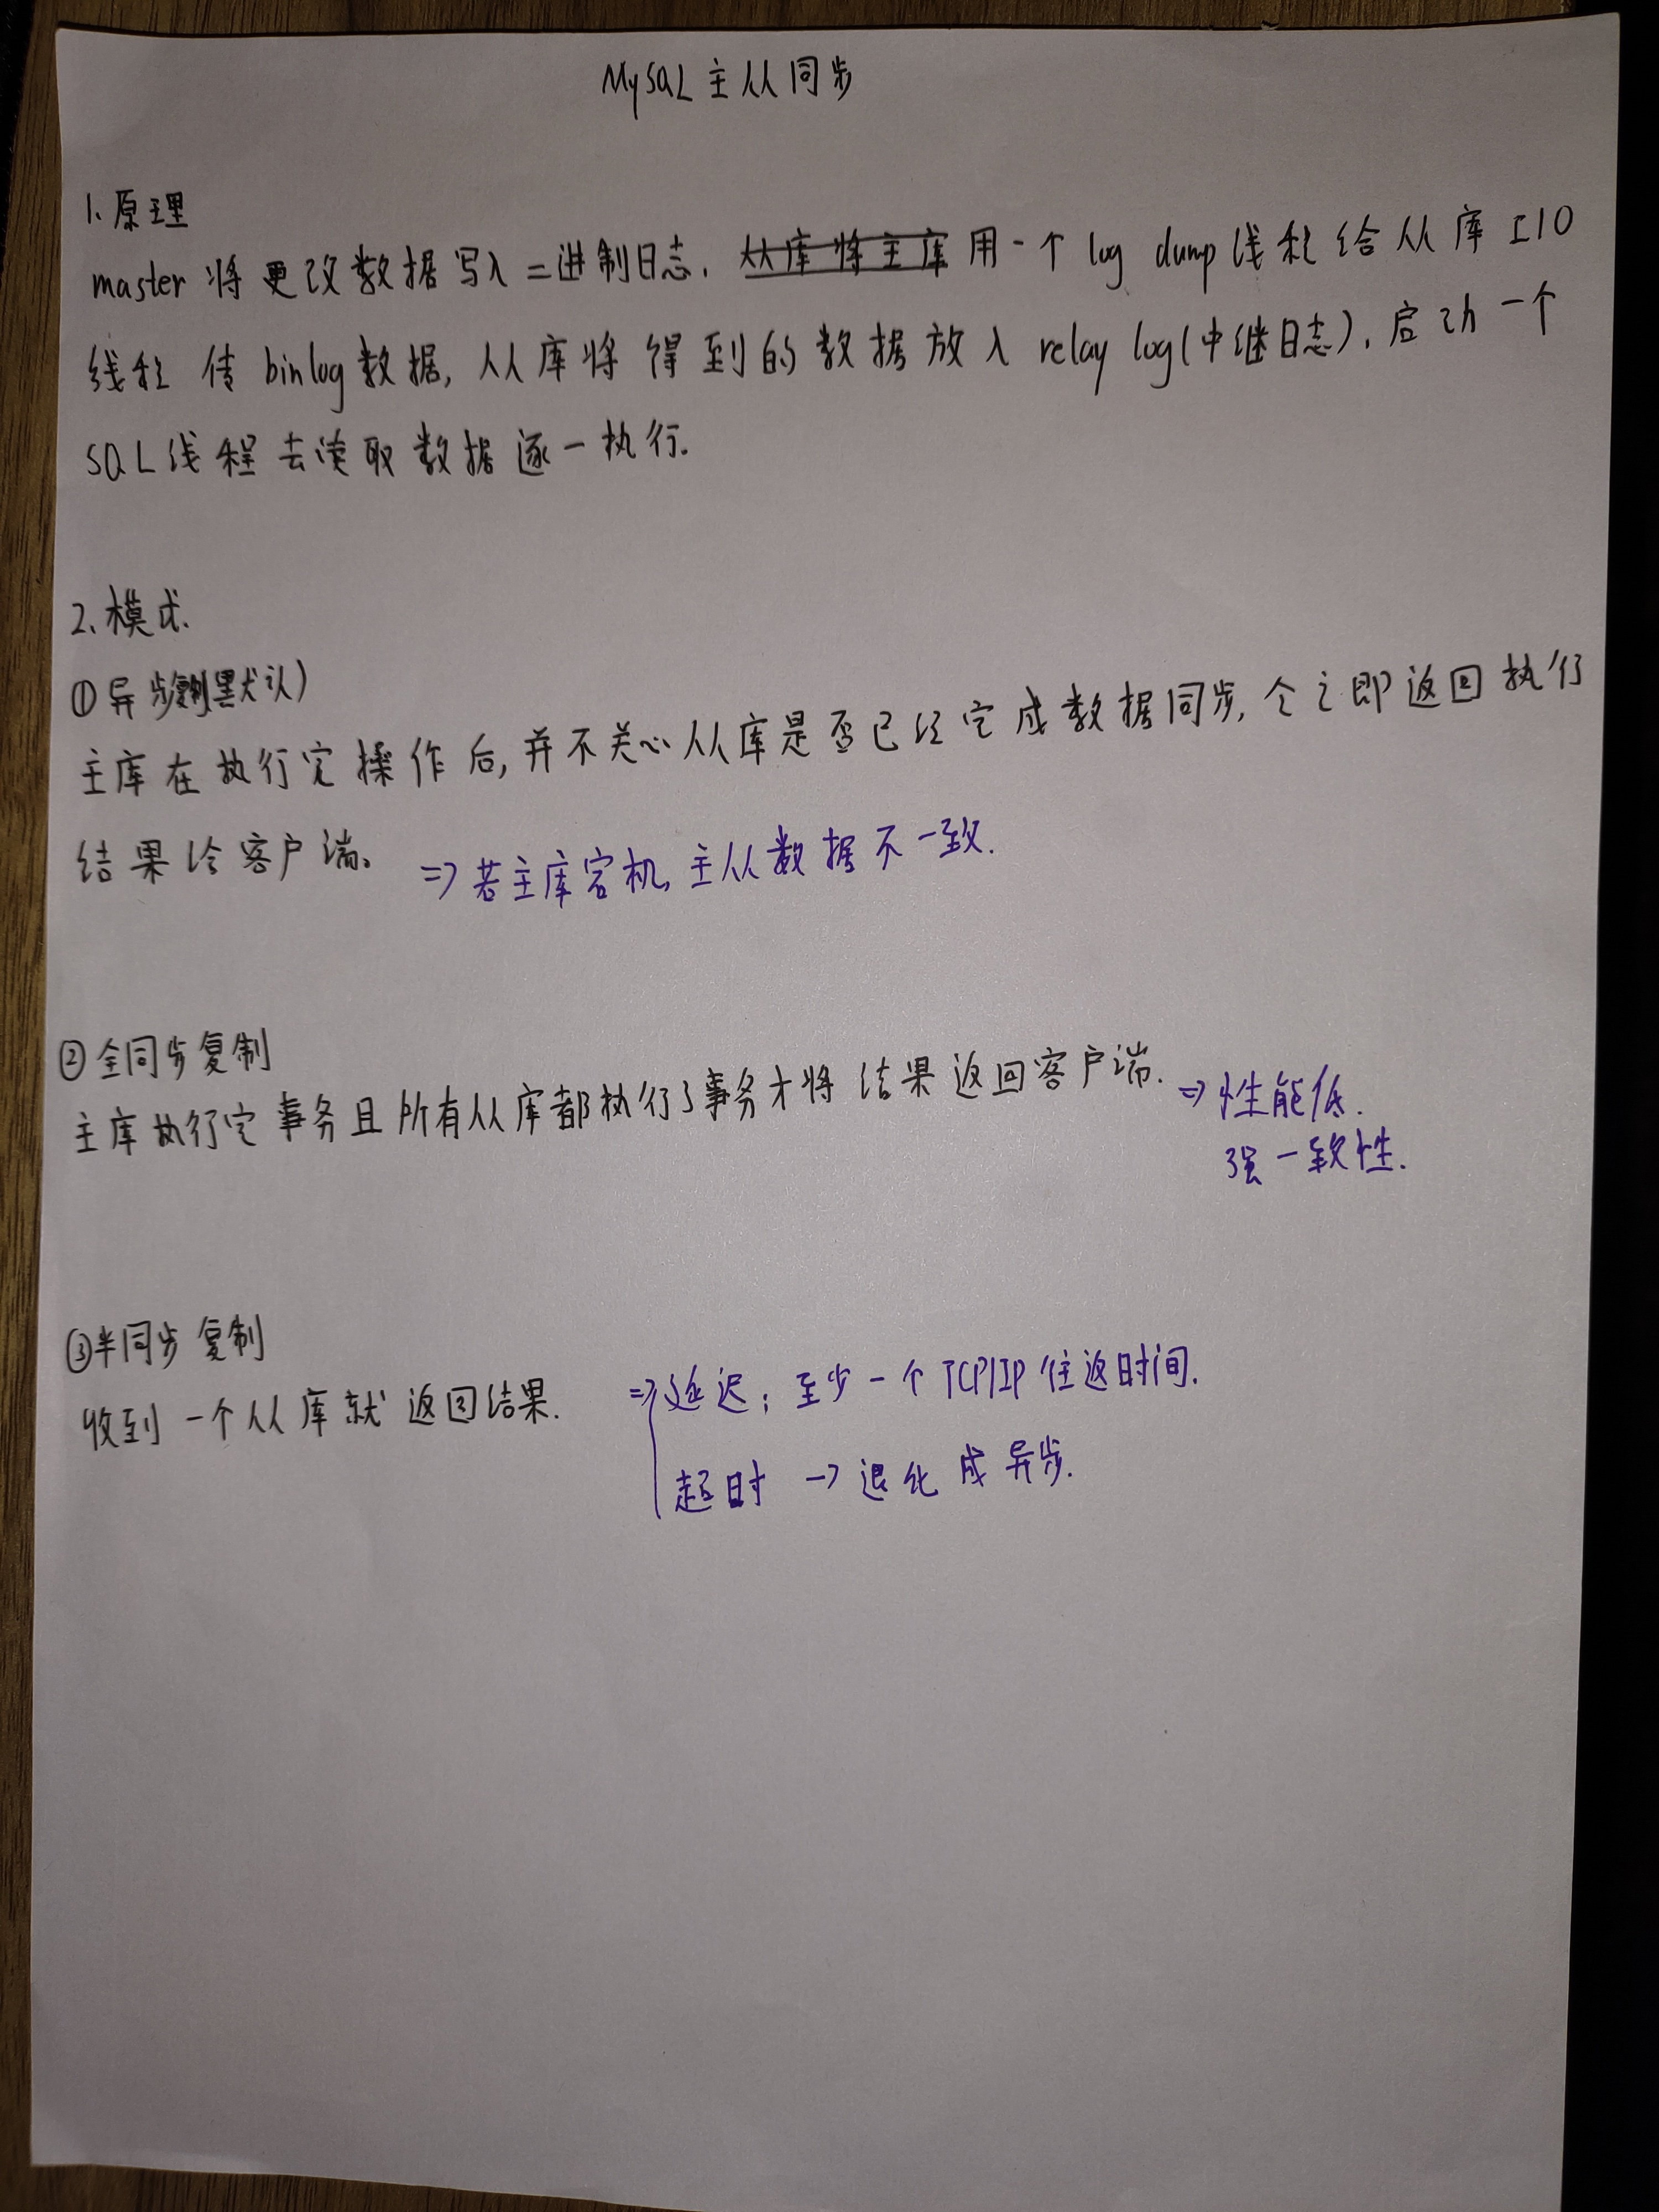 MySQL主从同步
1、原理
master将更改数据写入二进制日志. 从库将主库 用一个 log dump线程给从库 I/O
线程 传 binlog数据, 从库将得到的数据放入 relay log(中继日志). 启动一个
SQL线程去读取数据逐一执行.
2、模式.
①异步(默认)
主库在执行完操作后,并不关心从库是否已经完成数据同步,会立即返回执行
结果给客户端。 => 若主库宕机, 主从数据不一致.
②全同步复制
主库执行完事务且所有从库都执行了事务才将结果返回客户端. => 性能低.
强一致性.
③半同步复制
收到一个从库就返回结果. => 延迟: 至少一个TCP/IP往返时间.
超时 -> 退化成异步.